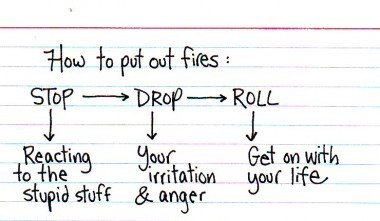 How to put out fires:
STOP → DROP → ROLL
Reacting
to the
stupid stuff
Your
irritation
& anger
Get on with
your life